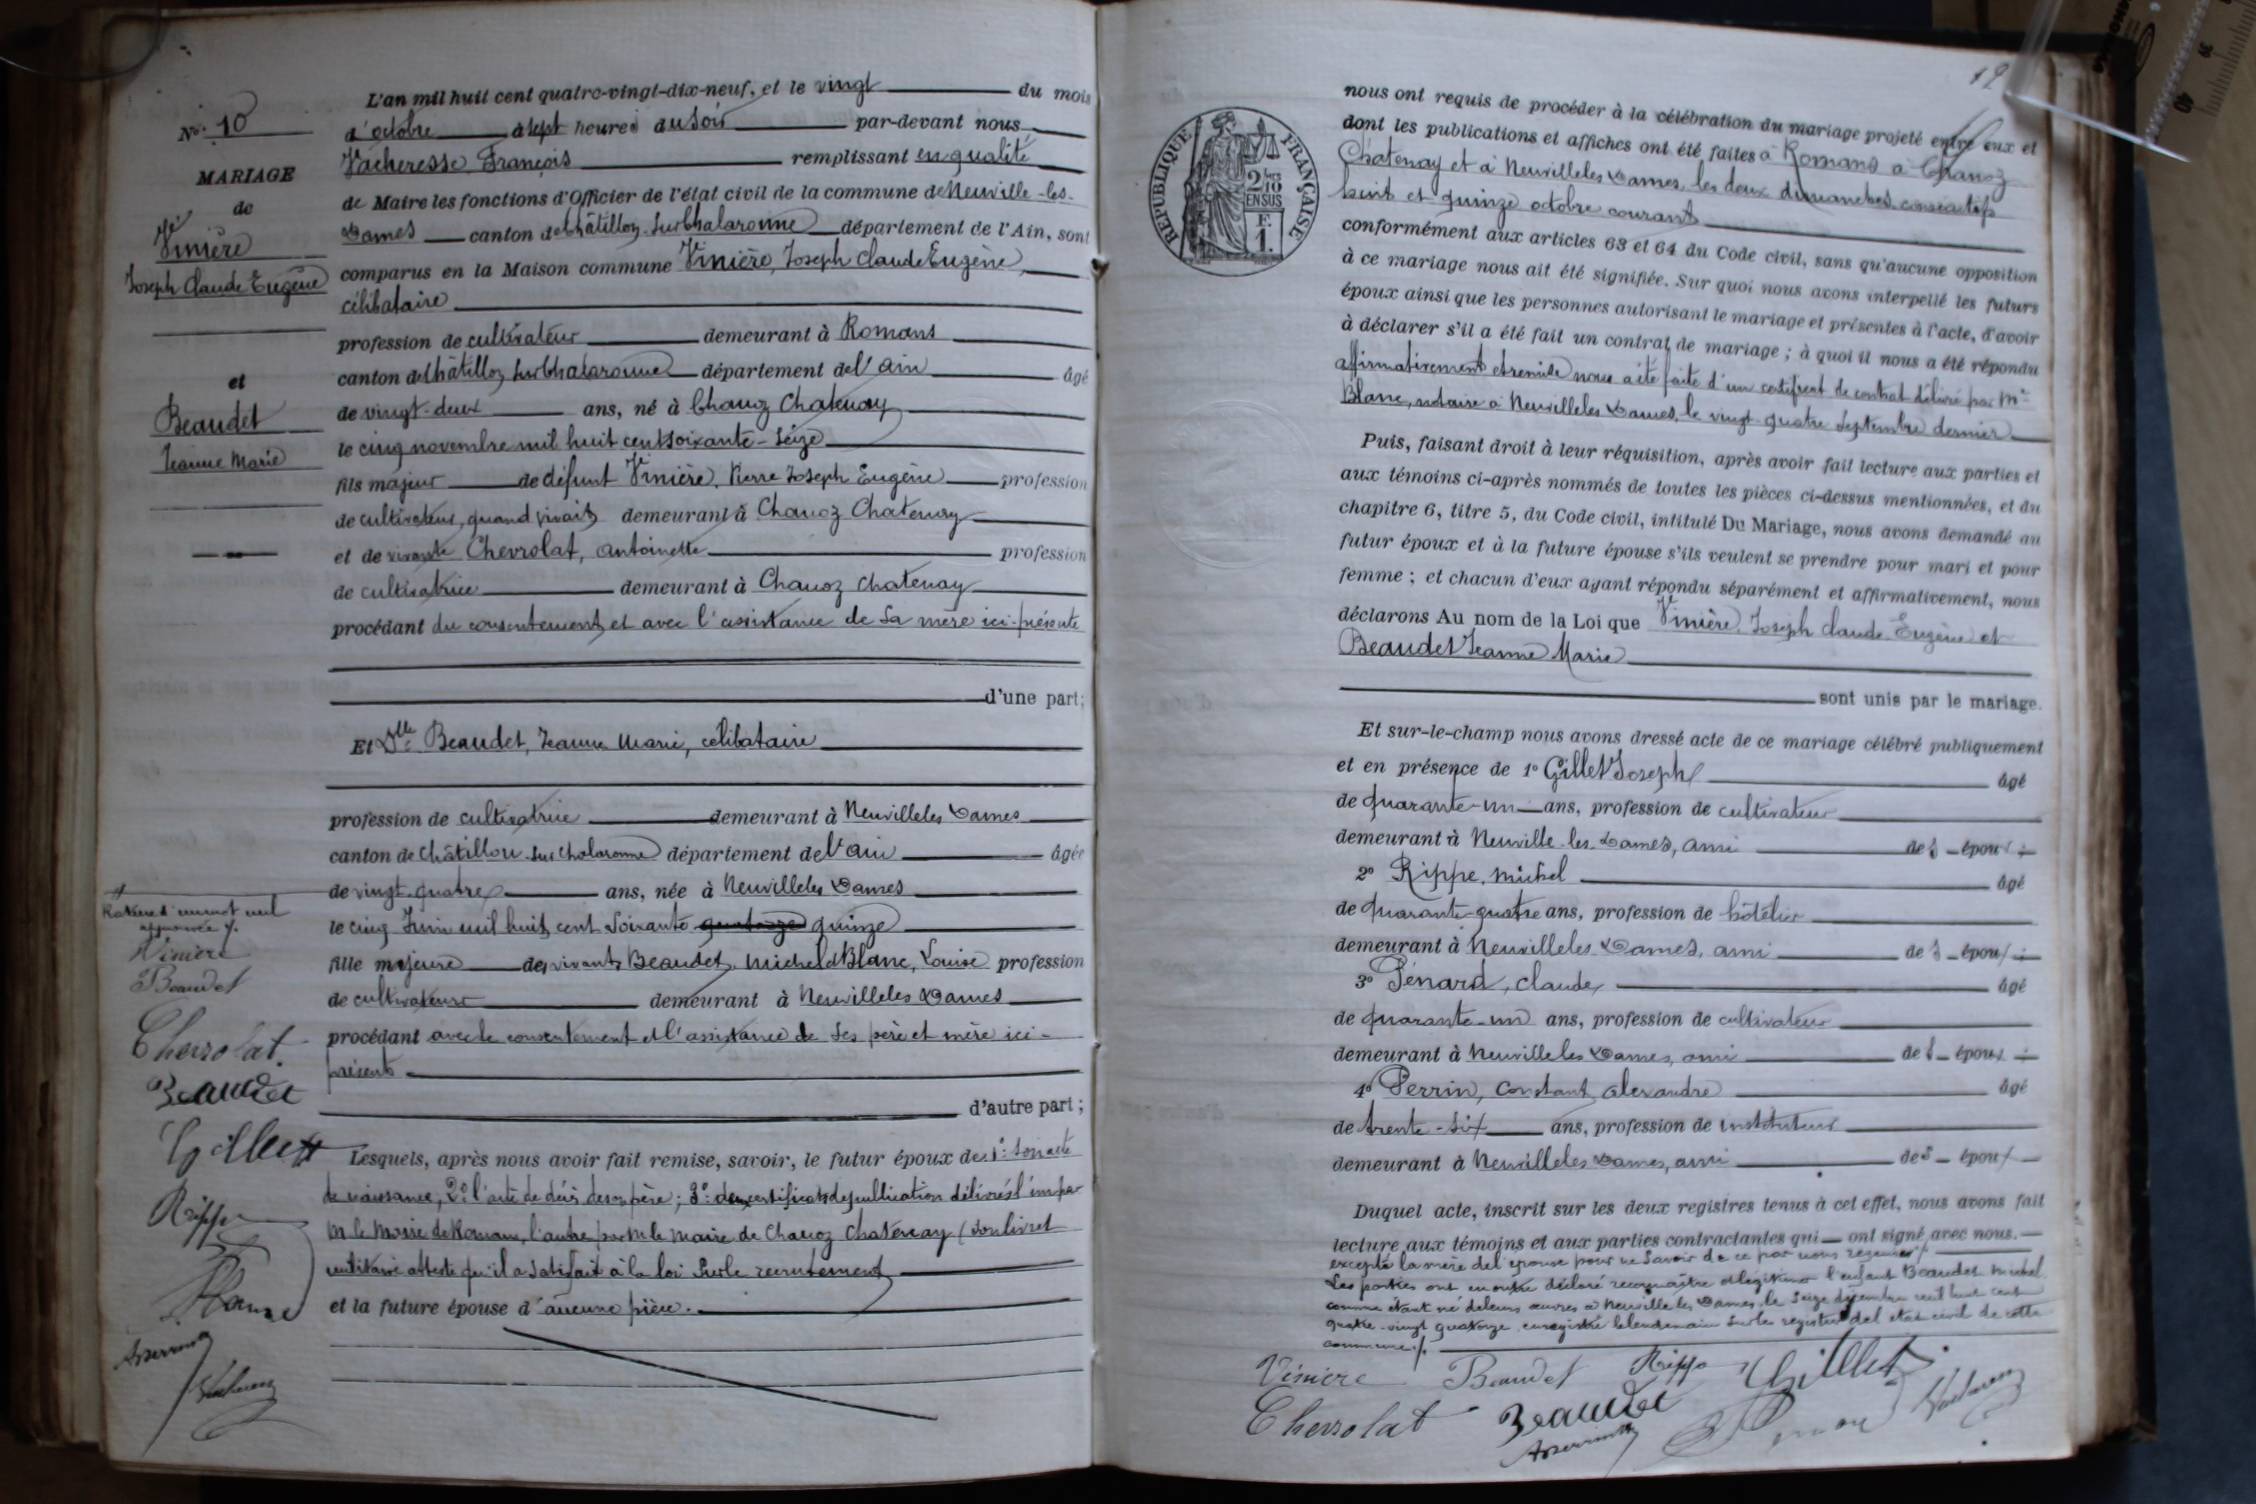 N° 10
MARIAGE
de
Vinière
Joseph Claude Eugène
et
Beaudet
Jeanne Marie
L'an mil huit cent quatre-vingt-dix-neuf, et le vingt du mois
d'octobre à sept heures du soir par-devant nous
Vacheresse François remplissant en qualité
de Maire les fonctions d'Officier de l'état civil de la commune de Neuville-les-
Dames canton de Châtillon sur Chalaronne département de l'Ain, sont
comparus en la Maison commune Vinière, Joseph Claude Eugène,
célibataire
profession de cultivateur demeurant à Romans
canton de Châtillon sur Chalaronne département de l'ain âgé
de vingt-deux ans, né à Chanoz Chatenay
le cinq novembre mil huit cent soixante-seize
fils majeur de défunt Vinière, Pierre Joseph Eugène profession
de cultivateur, quand vivait demeurant à Chanoz Chatenay
et de vivante Chevrolat, antoinette profession
de cultivatrice demeurant à Chanoz Chatenay
procédant du consentement et avec l'assistance de sa mère ici-présente
d'une part;
Et Dlle Beaudet, Jeanne Marie, célibataire
profession de cultivatrice demeurant à Neuville les Dames
canton de Châtillon-sur Chalaronne département de l'ain âgée
de vingt-quatre ans, née à Neuville les Dames
le cinq Juin mil huit cent soixante quatorze quinze
fille majeure de vivants Beaudet, Michel et Blanc, Louise profession
de cultivateurs demeurant à Neuville les Dames
procédant avec le consentement et l'assistance de ses père et mère ici-
présents
d'autre part;
Lesquels, après nous avoir fait remise, savoir, le futur époux de 1° son acte
de naissance, 2° l'acte de décès de son père; 3° deux certificats de publication délivrés l'un par
M. le Maire de Romans, l'autre par M. le maire de Chanoz Chatenay (son livret
militaire atteste qu'il a satisfait à la loi sur le recrutement
et la future épouse d'aucune pièce.
Rature d'un mot nul
approuvée
Vinière
Beaudet
Chevrolat
Beaudet
Gillet
Rippe
12
RÉPUBLIQUE FRANÇAISE
2/10 EN SUS
F.
1.
nous ont requis de procéder à la célébration du mariage projeté entre eux et
dont les publications et affiches ont été faites à Romans à Chanoz
Chatenay et à Neuville les Dames, les deux dimanches consécutifs
huit et quinze octobre courant
conformément aux articles 63 et 64 du Code civil, sans qu'aucune opposition
à ce mariage nous ait été signifiée. Sur quoi nous avons interpellé les futurs
époux ainsi que les personnes autorisant le mariage et présentes à l'acte, d'avoir
à déclarer s'il a été fait un contrat de mariage; à quoi il nous a été répondu
affirmativement et remise nous a été faite d'un certificat de contrat délivré par Me
Blanc, notaire à Neuville les Dames, le vingt-quatre Septembre dernier
Puis, faisant droit à leur réquisition, après avoir fait lecture aux parties et
aux témoins ci-après nommés de toutes les pièces ci-dessus mentionnées, et du
chapitre 6, titre 5, du Code civil, intitulé Du Mariage, nous avons demandé au
futur époux et à la future épouse s'ils veulent se prendre pour mari et pour
femme; et chacun d'eux ayant répondu séparément et affirmativement, nous
déclarons Au nom de la Loi que Vinière, Joseph Claude Eugène et
Beaudet Jeanne Marie
sont unis par le mariage.
Et sur-le-champ nous avons dressé acte de ce mariage célébré publiquement
et en présence de 1° Gillet Joseph âgé
de quarante-un ans, profession de cultivateur
demeurant à Neuville-les-Dames, ami des époux
2° Rippe, Michel âgé
de quarante-quatre ans, profession de hôtelier
demeurant à Neuville les Dames, ami des époux
3° Penard, Claude, âgé
de quarante-un ans, profession de cultivateur
demeurant à Neuville les Dames, ami des époux
4° Perrin, Constant, alexandre âgé
de trente-six ans, profession de instituteur
demeurant à Neuville les Dames, ami des époux
Duquel acte, inscrit sur les deux registres tenus à cet effet, nous avons fait
lecture aux témoins et aux parties contractantes qui ont signé avec nous.
excepté la mère de l'épouse pour ne savoir de ce par nous requise
Les parties ont en outre déclaré reconnaître et légitimer l'enfant Beaudet Michel
comme étant né de leurs œuvres à Neuville les Dames le seize décembre mil huit cent
quatre-vingt quatorze, enregistré le lendemain sur les registres de l'état civil de cette
commune
Vinière Beaudet Rippe Gillet
Chevrolat Beaudet Penard